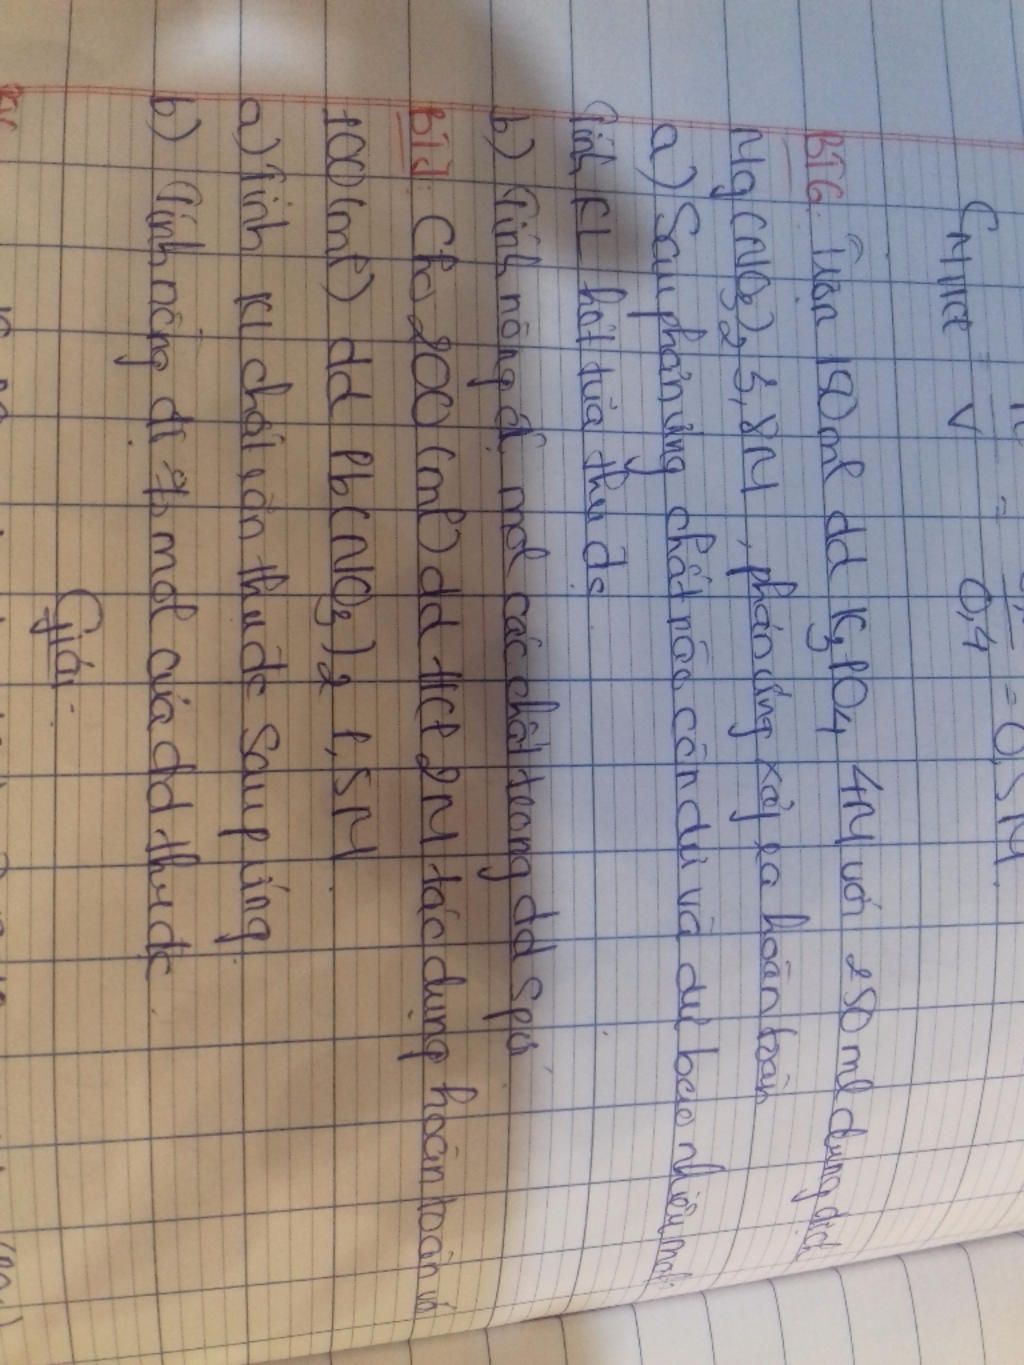 CM HCl = n/V = 0,2/0,4 = 0,5M.
BT6: Trộn 150ml dd K3PO4 4M với 250ml dung dịch
Mg(NO3)2 3,8M, phản ứng xảy ra hoàn toàn
a) Sau phản ứng chất nào còn dư và dư bao nhiêu mol.
Tính KL kết tủa thu đc
b) Tính nồng độ mol các chất trong dd spứ
Cho 200(ml) dd HCl 2M tác dụng hoàn toàn vs
100(ml) dd Pb(NO3)2 1,5M
a) Tính KL chất rắn thu đc sau p/ứng
b) Tính nồng độ mol của dd thu đc
Giải.